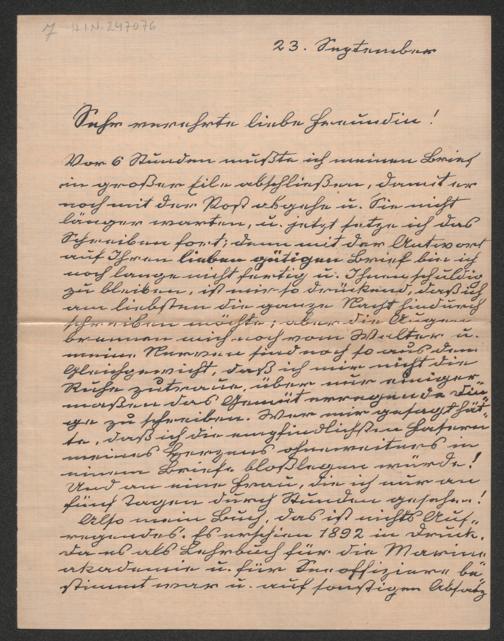 7 H.I.N. 247076
23. September
Sehr verehrte liebe Freundin!
Vor 6 Stunden mußte ich meinen Brief
in großer Eile abschließen, damit er
noch mit der Post abgehe u. Sie nicht
länger warten, u. jetzt setze ich das
Schreiben fort; denn mit der Antwort
auf Ihren lieben gütigen Brief bin ich
noch lange nicht fertig u. Ihnen schuldig
zu bleiben, ist mir so drückend, daß ich
am liebsten die ganze Nacht hindurch
schreiben möchte; aber die Augen
brennen mich noch vom Wetter u.
meine Nerven sind noch so aus dem
Gleichgewicht, daß ich mir nicht die
Ruhe zutraue, über mir einiger
maßen das Gemüt erregende Din-
ge zu schreiben. Wer mir gesagt hät-
te, daß ich die empfindlichsten Fasern
meines Herzens ohneweiters in
einem Briefe bloßlegen würde!
Und an eine Frau, die ich nur an
fünf Tagen durch Stunden gesehen!
Also mein Buch, das ist nichts Auf-
regendes. Es erschien 1892 in Druck.
Da es als Lehrbuch für die Marine
akademie u. für Seeoffiziere be
stimmt war u. auf sonstigen Absatz